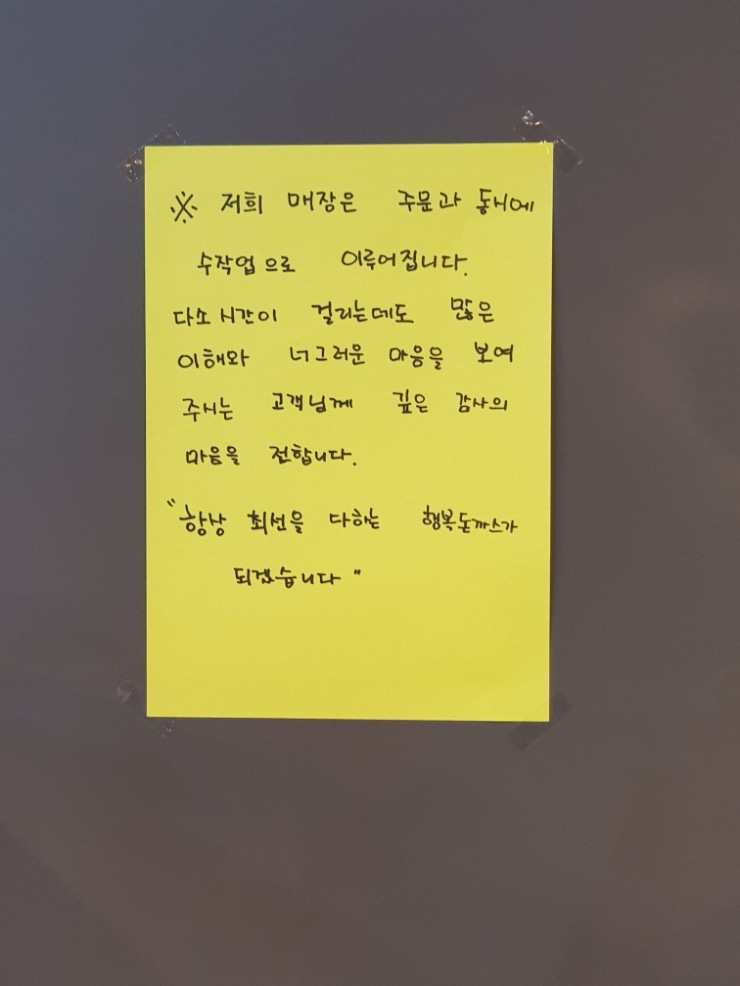 ※ 저희 매장은 주문과 동시에
수작업으로 이루어집니다.
다소 시간이 걸리는데도 많은
이해와 너그러운 마음을 보여
주시는 고객님께 깊은 감사의
마음을 전합니다.
"항상 최선을 다하는 행복돈까스가
되겠습니다"